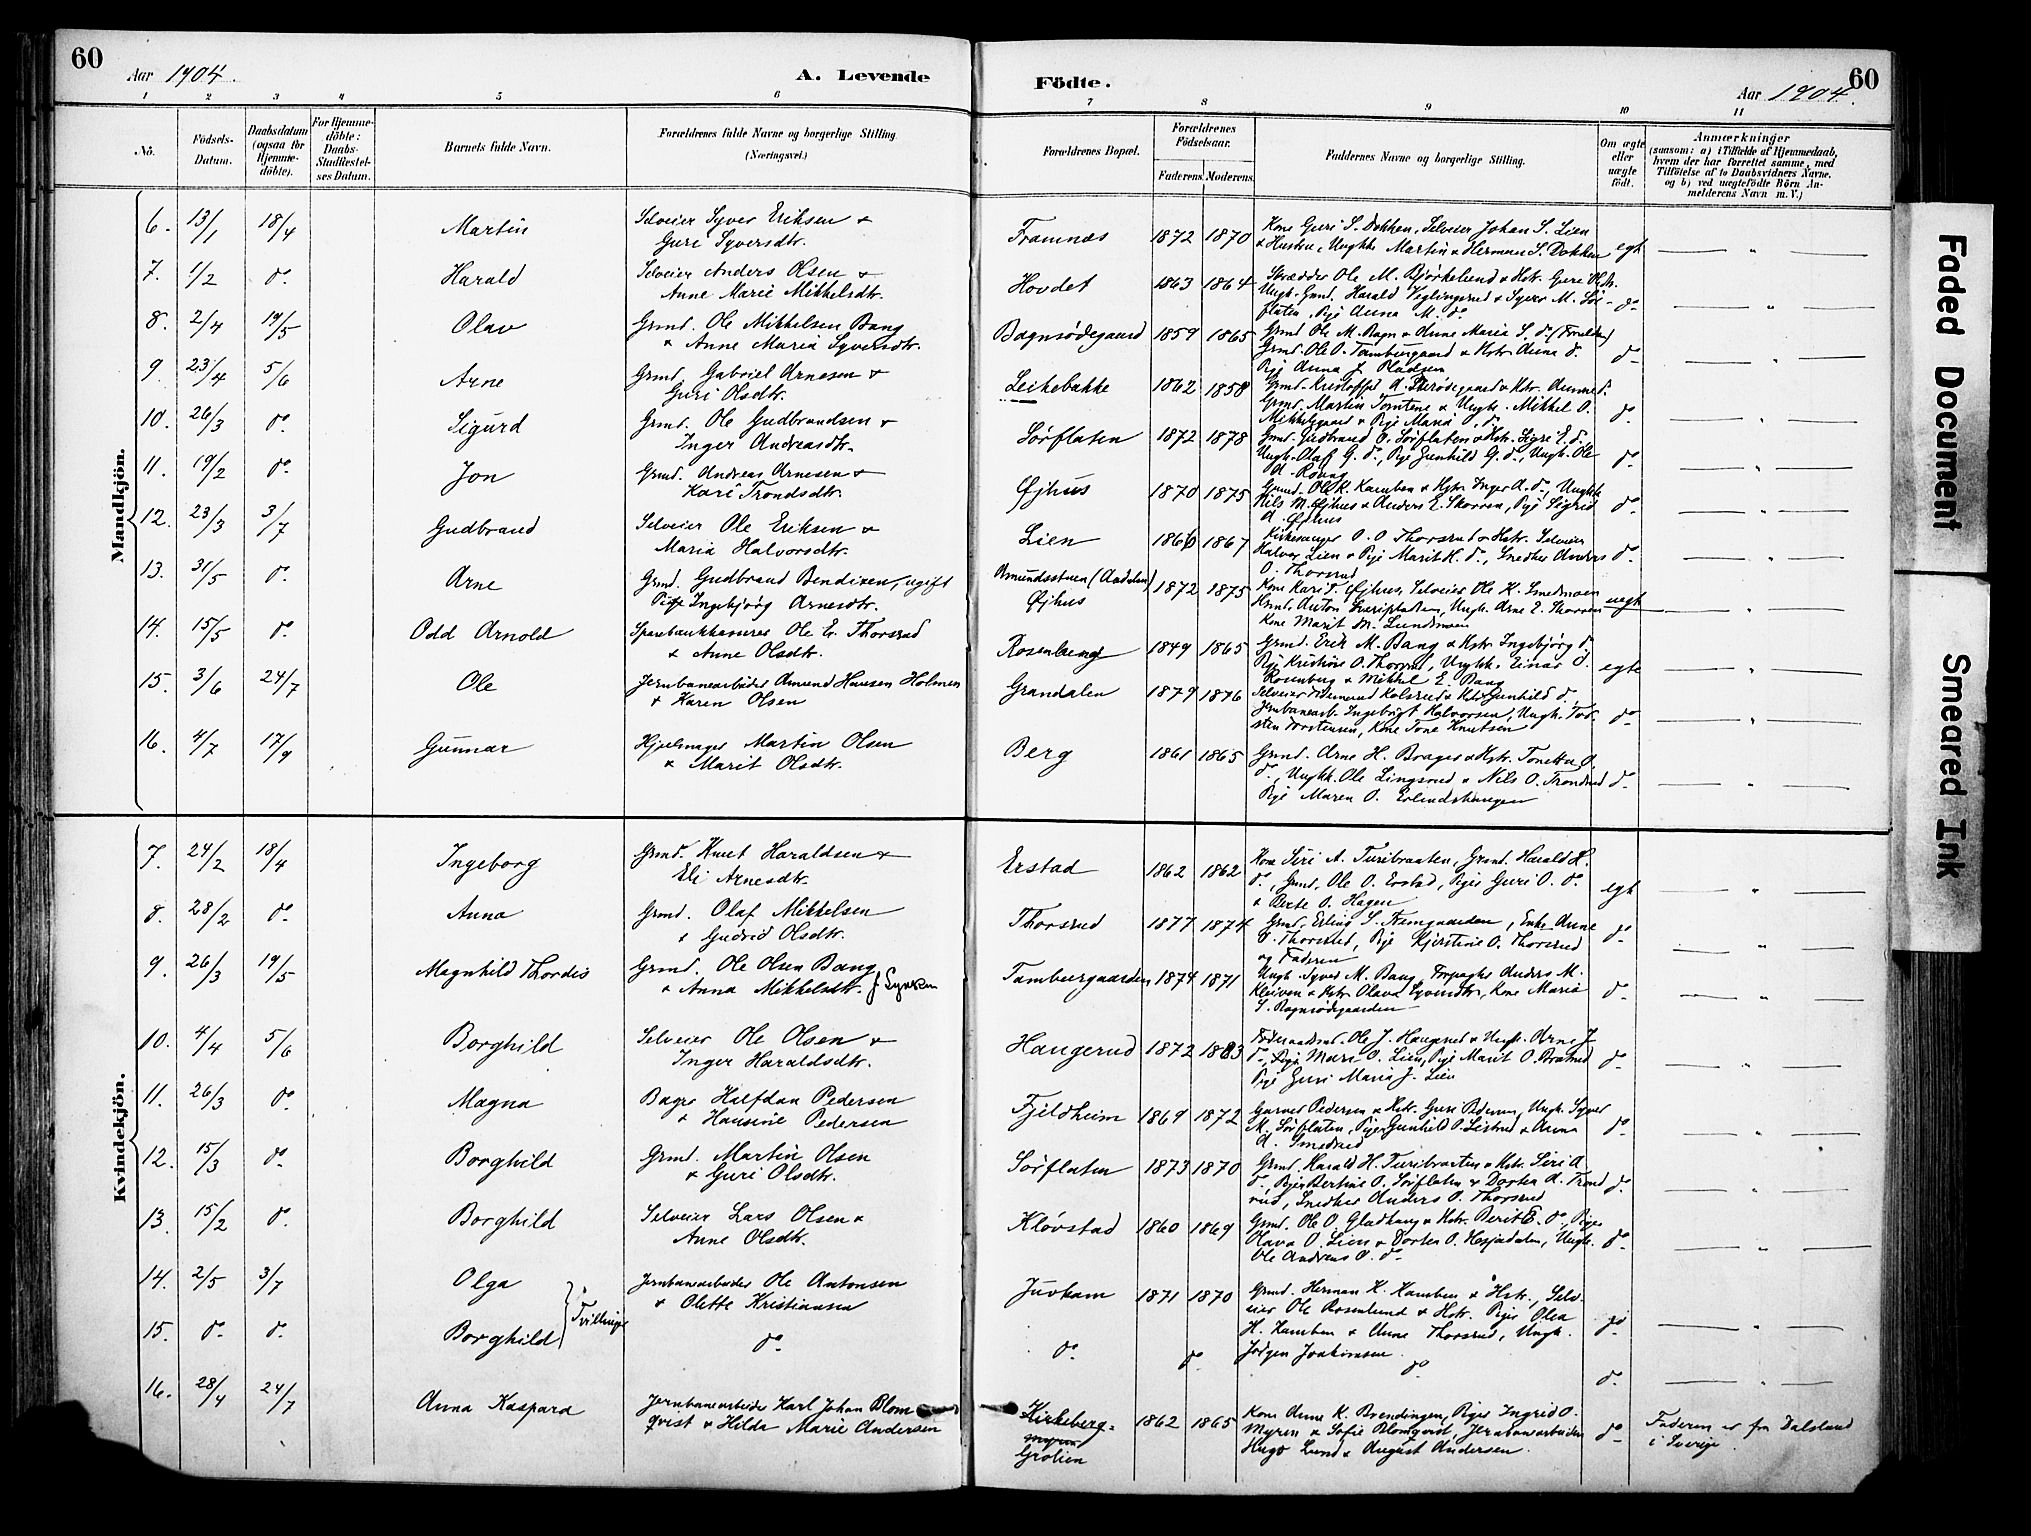 60
Aar 1904.
A. Levende
Födte.
Aar 1904.
60
1 2 3 4 5 6 7 8 9 10 11
No.
Födsels-Datum.
Daabsdatum (ogsaa for Hjemme-döbte).
For Hjemme-döbte: Daabs-Stadfestel-ses Datum.
Barnets fulde Navn.
Forældrenes fulde Navne og borgerlige Stilling (Næringsvei.)
Forældrenes Bopæl.
Forældrenes Födselsaar.
Faderens. Moderens.
Faddernes Navne og borgerlige Stilling.
Om ægte eller uægte födt.
Anmærkninger
(saasom: a) i Tilfælde af Hjemmedaab,
hvem der har forrettet samme, med
Tilföielse af to Daabsvidners Navne.
og b) ved uægtefödte Börn An-
melderens Navn m. V.)
Mandkjön.
6. 13/1 18/4 Martin Selveier Syver Eriksen & Guri Syversdtr. Framnæs 1872 1870 Kone Guri S. Dokken, Selveier Johan S. Lien & Hustru, Ungkk Martin & Herman S. Dokken egt
7. 1/2 do. Harald Selveier Anders Olsen & Anne Marie Mikkelsdtr. Hovdet 1863 1864 Skrædder Ole M. Bjørkelund & Hstr. Guri Olsdtr. Ungk. Gmd. Harald Veglingsrud & Syver M. Sør-flaten, Pige Anna M. do. do.
8. 2/4 19/5 Olav Grmd. Ole Mikkelsen Bang & Anne Maria Syversdtr. Bagnsødegaard 1859 1865 Grmd Ole M. Bagn & Anne Maria S. do (Forældre) Grmd. Ole O. Tamburgaard & Hstr. Anna do. Pige Anna J. do.
9. 23/4 5/6 Arne Grmd. Gabriel Arnesen & Guri Olsdtr. Leikebakke 1862 1858 Grmd. Kristoffer A. & Hstr. Grmd. Martin Tomtene & Ungk. Mikkel O. & Pige Maria O. do. do.
10. 26/3 do. Sigurd Grmd. Ole Gudbrandsen & Inger Andreasdtr. Sørflaten 1872 1878 Grmd. Gudbrand O. Sørflaten & Hstr. Sigri E. do., Ungk. Olaf G. do., Pige Gunhild G. do., Ungk. Ole A. do.
11. 19/2 do. Jon Grmd. Andreas Arnesen & Kari Trondsdtr. Øjhus 1870 1875 Grmd. Ole K. Kamben & Hstr. Inger A. do., Ungkk Nils M. Øjhus & Anders E. Skorren, Pige Sigrid A. Øjhus do.
12. 23/3 3/7 Gudbrand Selveier Ole Eriksen & Maria Halvorsdtr. Lien 1866 1867 Kirkesanger O. O Thorsrud & Hstr. Selveier Halvor Lien & Pige Marit H. do., Snedker Anders O. Thorsrud do.
13. 31/5 do. Arne Grmd. Gudbrand Bendixen, ugift Pige Ingebjørg Arnesdtr. Amundsstuen (Aadalen) Øjhus 1872 1875 Kone Kari T. Øjhus, Selveier Ole K. Smedmoen Grmd. Anton, Ungk. Arne E. Skorren Kone Marit M. Lundmoen uegt
14. 15/5 do. Odd Arnold Sparebankkasserer Ole Er. Thorsrud & Anne Olsdtr. Rosenberg 1849 1865 Grmd. Erik M. Bang & Hstr. Ingebjørg do. Pige Kristine O. Thorsrud, Ungkk. Einar O. Rosenberg & Mikkel E. Bang egte
15. 3/6 24/7 Ole Jernbanearbeider Amund Hansen Holmen & Karen Olsen Grandalen 1879 1876 Selveier Kolsrud & Hstr Gunhild do. Jernbanearb. Ingebrigt Halvorsen, Ungk. Tor-sten Torstensen, Kone Tone Knutsen do.
16. 4/7 17/9 Gunnar Hjulmager Martin Olsen & Marit Olsdtr. Berg 1861 1865 Grmd. Arne H. Brager & Hstr. Tonetta O. do., Ungkk. Ole Lingsrud & Nils O. Trondrud Pige Maren O. Erlandshaugen do.
Kvindekjön.
7. 24/2 18/4 Ingeborg Grmd. Knut Haraldsen & Eli Arnesdtr. Erstad 1862 1862 Kone Siri A. Turibraaten, Grmd. Harald H. do., Grmd. Ole O. Erstad, Piger Guri O. do. & Berte O. Hagen egt
8. 28/2 do. Anna Grmd. Olaf Mikkelsen & Gudrid Olsdtr. Thorsrud 1877 1874 Grmd. Erling S. Framgaarden, Enke Anne O. Thorsrud, Pige Kjerstine O. Thorsrud og Faderen do.
9. 26/3 19/5 Magnhild Thordis Grmd. Ole Olsen Bang & Anna Mikkelsdtr. Tamburgaarden 1874 1871 Ungk. Syver M. Bang, Forpagter Anders M. Kleiven & Hstr Olava Syversdtr, Kone Maria S. Bagnsødegaarden do.
10. 4/4 5/6 Borghild Selveier Ole Olsen & Inger Haraldsdtr. Haugerud 1872 1883 Føderaadsmd. Ole J. Haugerud & Ungk. Arne J. do., Pige Mari O. Lien, Pige Marit O. Pige Guri Maria J. Lien do.
11. 26/3 do. Magna Bager Halfdan Pedersen & Hansine Pedersen Fjeldheim 1869 1872 Garver Pedersen & Hstr. Guri Pedersen, Ungk. Syver M. Sørflaten, Piger Gunhild O. & Anna A. Smedrud do.
12. 15/3 do. Borghild Grmd. Martin Olsen & Guri Olsdtr. Sørflaten 1873 1870 Grmd. Harald H. Turibraaten & Hstr. Siri A do., Piger Bertine O. Sørflaten & Dorten A. Trond-rud, Snedker Anders O. Thorsrud do.
13. 15/2 do. Borghild Selveier Lars Olsen & Anne Olsdtr. Kløvstad 1860 1869 Grmd. Ole O. Gladhaug & Hstr. Berit E. do., Piger Olava O. Lien & Dorten O. Hesjadalen, Ungk. Ole Andreas O. do. do.
14. 2/5 3/7 Olga Jernbanearbeider Ole Antonsen & Olette Kristiansen Juvkam 1871 1870 Grmd. Herman K. Kamben & Hstr., Selv-eier Ole Rosenlund & Hstr. Pige Olea H. Kamben & Anne Thorsrud, Ungk. Jörgen Joakimsen do.
Tvillinger
15. do. do. Borghild do. do. do. do. do.
16. 28/4 24/7 Anna Kaspara Jernbanearbeider Karl Johan Blom-qvist & Hilda Marie Andersen Kirkeberg-myren Grølien 1862 1865 Kone Anne K. Brendingen, Piger Ingrid O. Myren & Sofie Blomqvist, Jernbanearbeider Hugo Lund & August Andersen. do. Faderen er fra Dalsland i Sverige.
Faded Document
Smeared Ink